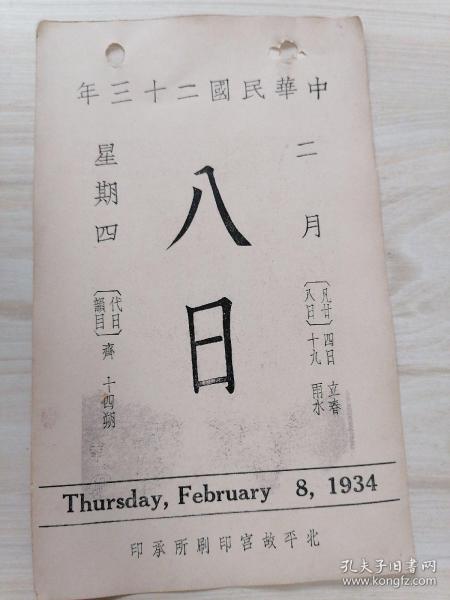 中華民國二十三年
二月
〔凡廿八日〕
四日 立春
十九 雨水
八日
星期四
〔代日韻目〕 齊 十四朔
Thursday, February 8, 1934
北平故宮印刷所承印
孔夫子旧书网
www.kongfz.com